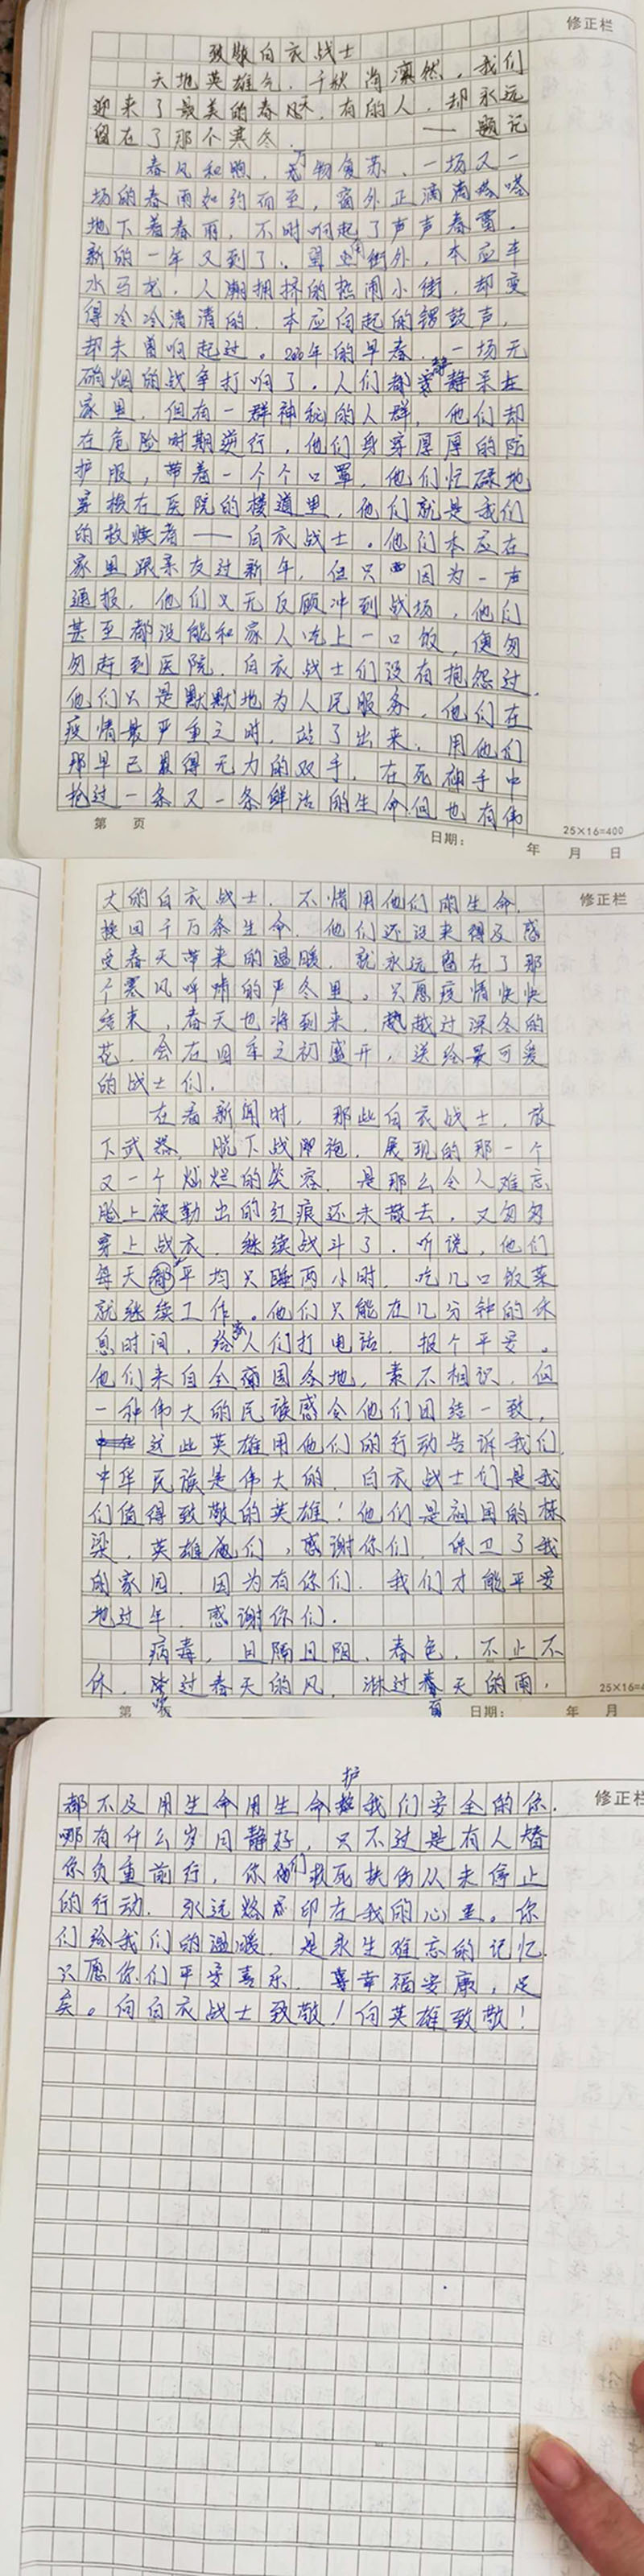 修正栏
致敬白衣战士
天地英雄气，千秋尚凛然，我们
迎来了最美的春天，有的人，却永远
留在了那个寒冬。——题记
春风和煦，万物复苏，一场又一
场的春雨如约而至，窗外正滴滴嗒嗒
地下着春雨，不时响起了声声春雷，
新的一年又到了。街外，本应车
水马龙，人潮拥挤的热闹小街，却变
得冷冷清清的，本应向起的锣鼓声，
却未曾响起过。2020年的早春，一场无
硝烟的战争打响了。人们都静静呆在
家里，但有一群神秘的人群，他们却
在危险时期逆行，他们身穿厚厚的防
护服，带着一个个口罩，他们忙碌地
穿梭在医院的楼道里，他们就是我们
的救援者——白衣战士。他们本应在
家里跟亲友过新年，但只因为一声
通报，他们义无反顾冲到战场，他们
甚至都没能和家人吃上一口饭，便匆
匆赶到医院，白衣战士们没有抱怨过，
他们只是默默地为人民服务，他们在
疫情最严重之时，站了出来，用他们
那早已累得无力的双手，在死神手中
抢过一条又一条鲜活的生命但也有伟
第 页
日期： 年 月 日
25×16=400
修正栏
大的白衣战士，不惜用他们的生命，
换回千万条生命，他们还没来得及感
受春天带来的温暖，就永远留在了那
个寒风呼啸的严冬里。只愿疫情快快
结束，春天也将到来，越过深冬的
花，会在回车之初盛开，送给最可爱
的战士们。
在看新闻时，那些白衣战士，放
下武器，脱下战袍，展现的那一个
又一个灿烂的笑容，是那么令人难忘
脸上被勒出的红痕还未散去，又匆匆
穿上战衣，继续战斗了，听说，他们
每天都平均只睡两小时，吃几口饭菜
就继续工作。他们只能在几分钟的休
息时间，给家人们打电话，报个平安。
他们来自全国各地，素不相识，但
一种伟大的民族感令他们团结一致，
这些英雄用他们的行动告诉我们，
中华民族是伟大的，白衣战士们是我
们值得致敬的英雄！他们是祖国的栋
梁，英雄们，感谢你们，保卫了我
的家园，因为有你们，我们才能平安
地过年，感谢你们。
病毒，且隔且阻，春色，不止不
休，吹过春天的风，淋过春天的雨，
第 页
日期： 年 月
25×16=4
修正栏
都不及用生命用生命护我们安全的你，
哪有什么岁月静好，只不过是有人替
你负重前行，你们救死扶伤从未停止
的行动，永远烙印在我的心里。你
们给我们的温暖，是永生难忘的记忆，
只愿你们平安喜乐，幸福安康，足
矣。向白衣战士致敬！向英雄致敬！